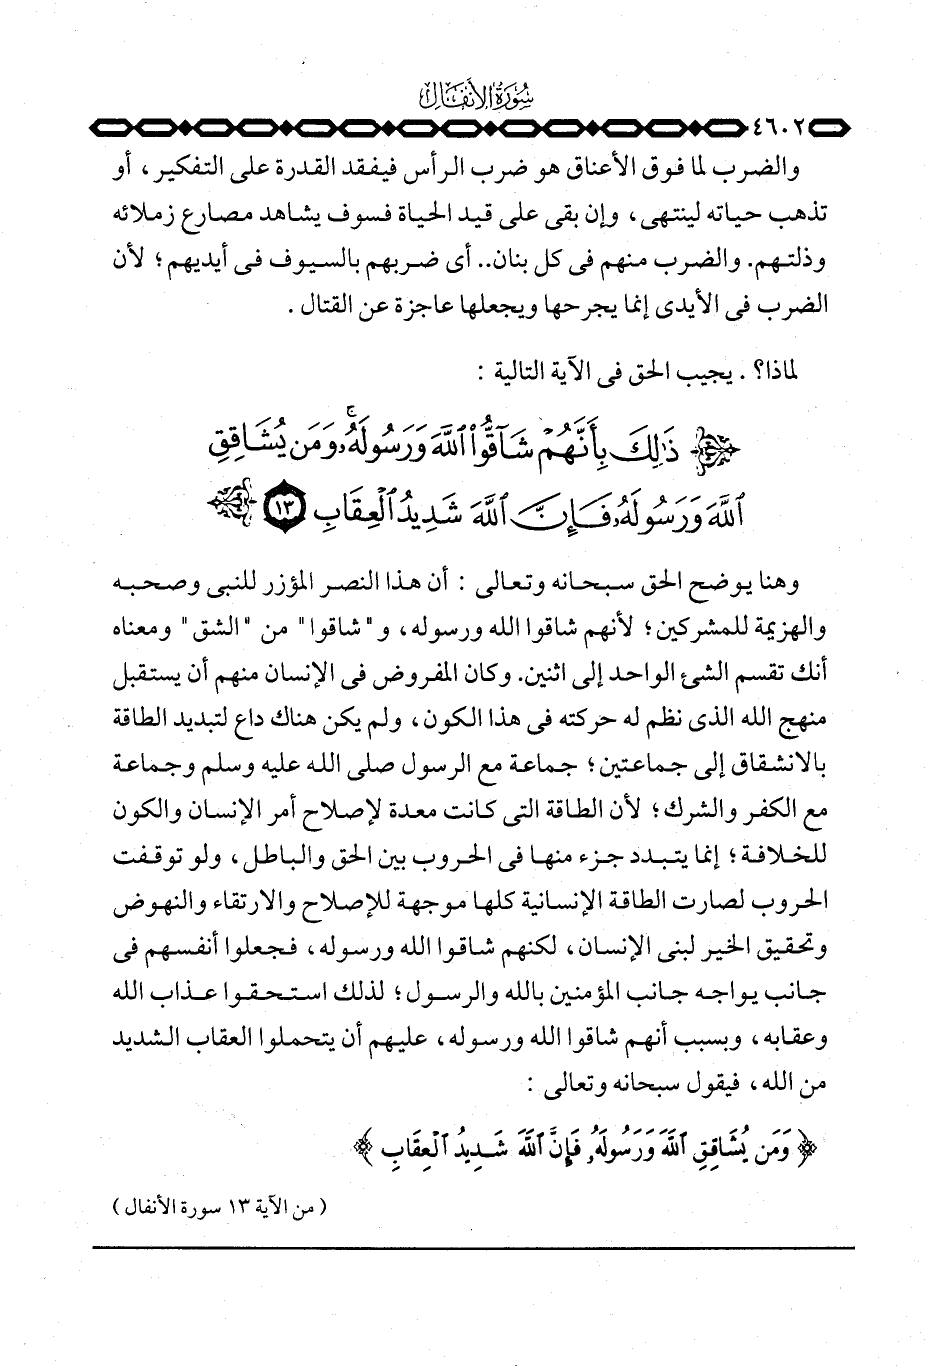 سورة الأنفال
٤٦٠٢
والضرب لما فوق الأعناق هو ضرب الرأس فيفقد القدرة على التفكير، أو
تذهب حياته لينتهى، وإن بقى على قيد الحياة فسوف يشاهد مصارع زملائه
وذلتهم. والضرب منهم فى كل بنان.. أى ضربهم بالسيوف فى أيديهم؛ لأن
الضرب فى الأيدى إنما يجرحها ويجعلها عاجزة عن القتال .
لماذا؟ . يجيب الحق فى الآية التالية :
ذَٰلِكَ بِأَنَّهُمْ شَآقُّوا۟ ٱللَّهَ وَرَسُولَهُۥ ۚ وَمَن يُشَاقِقِ
ٱللَّهَ وَرَسُولَهُۥ فَإِنَّ ٱللَّهَ شَدِيدُ ٱلْعِقَابِ ١٣
وهنا يوضح الحق سبحانه وتعالى : أن هذا النصر المؤزر للنبى وصحبه
والهزيمة للمشركين؛ لأنهم شاقوا الله ورسوله، و"شاقوا" من "الشق" ومعناه
أنك تقسم الشئ الواحد إلى اثنين. وكان المفروض فى الإنسان منهم أن يستقبل
منهج الله الذى نظم له حركته فى هذا الكون، ولم يكن هناك داع لتبديد الطاقة
بالانشقاق إلى جماعتين؛ جماعة مع الرسول صلى الله عليه وسلم وجماعة
مع الكفر والشرك؛ لأن الطاقة التى كانت معدة لإصلاح أمر الإنسان والكون
للخلافة؛ إنما يتبدد جزء منها فى الحروب بين الحق والباطل، ولو توقفت
الحروب لصارت الطاقة الإنسانية كلها موجهة للإصلاح والارتقاء والنهوض
وتحقيق الخير لبنى الإنسان، لكنهم شاقوا الله ورسوله، فجعلوا أنفسهم فى
جانب يواجه جانب المؤمنين بالله والرسول؛ لذلك استحقوا عذاب الله
وعقابه، وبسبب أنهم شاقوا الله ورسوله، عليهم أن يتحملوا العقاب الشديد
من الله، فيقول سبحانه وتعالى :
﴿ وَمَن يُشَاقِقِ ٱللَّهَ وَرَسُولَهُۥ فَإِنَّ ٱللَّهَ شَدِيدُ ٱلْعِقَابِ ﴾
( من الآية ١٣ سورة الأنفال )